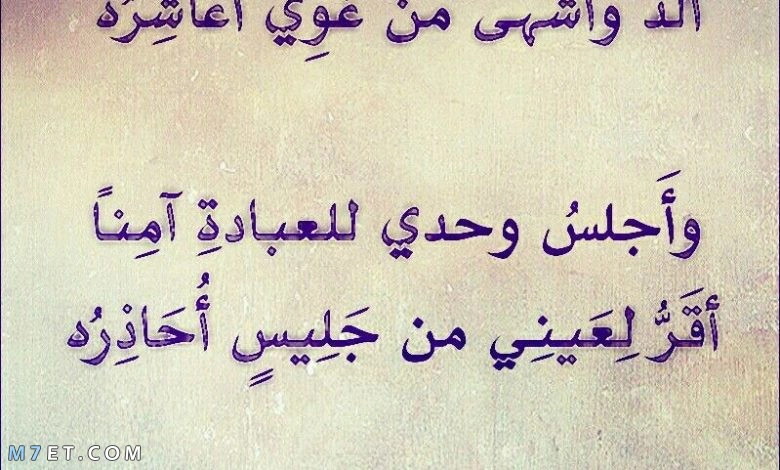 ألذ وأشهى من غوي أعاشِرُه
وأَجلسُ وحدي للعبادةِ آمِناً
أقَرُّ لِعَينِي من جَلِيسٍ أُحَاذِرُه
M7ET.COM